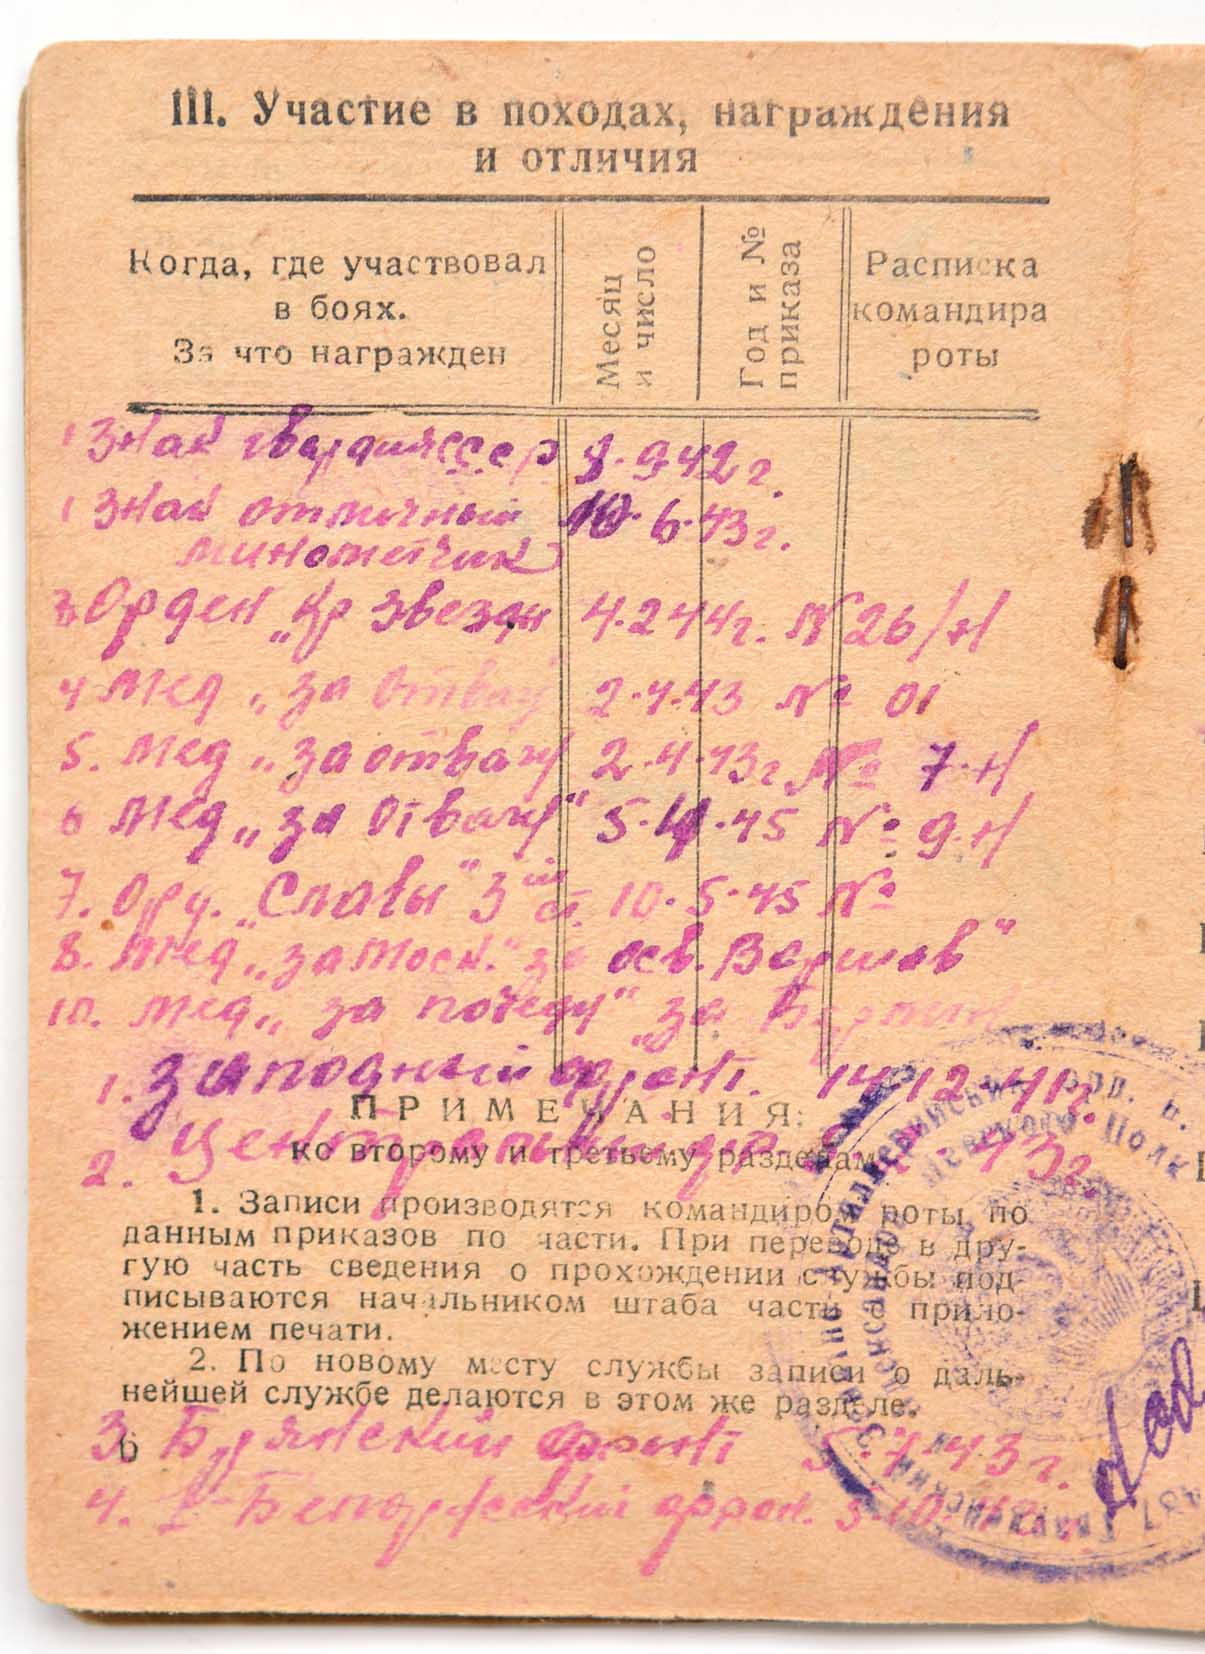 III. Участие в походах, награждения
и отличия
Когда, где участвовал
в боях.
За что награжден
Месяц
и число
Год и №
приказа
Расписка
командира
роты
1 Знак гвардия СССР 8.9.42 г.
1 Знак отличный 10.6.43 г.
минометчик
3 Орден „Кр звезды 4.2.44 г. № 26/н
4 мед „за отвагу 2.4.43 № 01
5. мед „за отвагу 2.4.43 г. № 7-н
6 мед „за отвагу“ 5.4.45 № 9-н
7. Орд. „Славы“ 3ей ст. 10.5.45 №
8. мед „за Моск.“ за осв. Варшав“
10. мед „за победу“ „за Берлин
1. западный фронт. 14.12.41 г.
ПРИМЕЧАНИЯ:
2. Центральный 43 г.
ко второму и третьему разделам
1. Записи производятся командиром роты по
данным приказов по части. При переводе в дру-
гую часть сведения о прохождении службы под-
писываются начальником штаба части с прило-
жением печати.
2. По новому месту службы записи о даль-
нейшей службе делаются в этом же разделе.
3. Брянский фронт 5.7.43 г.
6
4. 1-Белорусский фрон. 5.10.43 г.
Полк